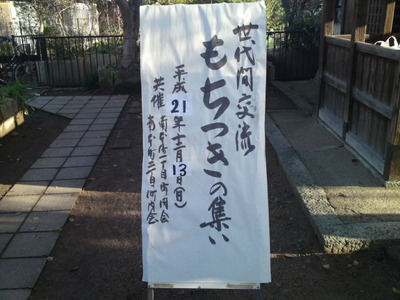 世代間交流
もちつきの集い
平成21年十二月13日(日)
共催 あずま一丁目町内会
あずま二丁目町内会